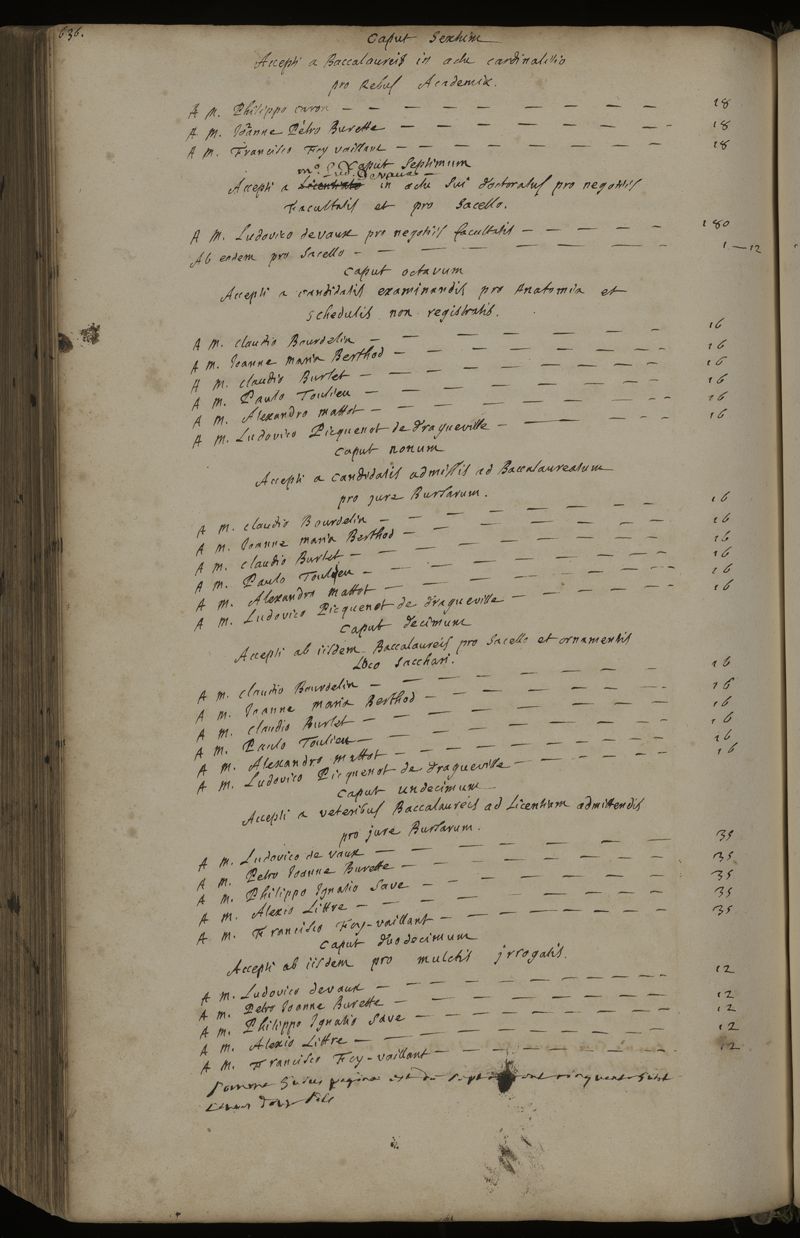 636.
Caput Sextum
Accepti a Baccalaureis in actu cardinalitio
pro Rebus Academiæ.
A M. Philippo caron — — — — — — — 18
A M. Joanne Petro Burette — — — — — — — 18
A M. Francisco Foy vaillant — — — — — — — 18
Caput Septimum
mo. Lud. Devaux
Accepti a Licentiato in actu sui doctoratus pro negotiis
Facultatis et pro Sacello.
A M. Ludovico devaux pro negotiis facultatis — — — — 180
Ab eodem pro Sacello — — — — — — — 1 — 12
Caput octavum
Accepti a candidatis examinandis pro Anatomia et
schedulis non registratis.
A M. claudio Bourdelin — — — — — — 16
A M. Joanne Maria Berthod — — — — — — 16
A M. claudio Burlet — — — — — — 16
A M. Paulo Toulieu — — — — — — 16
A M. Alexandro mattot — — — — — — 16
A M. Ludovico Picquenot de dragueville — — — — 16
Caput nonum
Accepti a candidatis admissis ad Baccalaureatum
pro jure Bursarum.
A M. claudio Bourdelin — — — — — — 16
A M. Joanne maria Berthod — — — — — — 16
A M. claudio Burlet — — — — — — 16
A M. Paulo Toulieu — — — — — — 16
A M. Alexandro mattot — — — — — — 16
A M. Ludovico Picquenot de dragueville — — — — 16
Caput decimum
Accepti ab iisdem Baccalaureis pro Sacello et ornamentis
Loco Sacchari.
A M. claudio Bourdelin — — — — — — 16
A M. Joanne maria Berthod — — — — — — 16
A M. claudio Burlet — — — — — — 16
A M. Paulo Toulieu — — — — — — 16
A M. Alexandro mattot — — — — — — 16
A M. Ludovico Picquenot de dragueville — — — — 16
Caput undecimum
Accepti a veteribus Baccalaureis ad Licentiam admittendis
pro jure Bursarum.
A M. Ludovico de vaux — — — — — — 35
A M. Petro Joanne Burette — — — — — — 35
A M. Philippo Ignatio Save — — — — — — 35
A M. Alexio Littre — — — — — — 35
A M. Francisco Foy-vaillant — — — — — — 35
Caput duodecimum
Accepti ab iisdem pro mulctis jrrogatis.
A M. Ludovico devaux — — — — — — 12
A M. Petro Joanne Burette — — — — — — 12
A M. Philippo Ignatio Save — — — — — — 12
A M. Alexio Littre — — — — — — 12
A M. Francisco Foy-vaillant — — — — — — 12
pagina est de cinquante huit
Livres douze sols